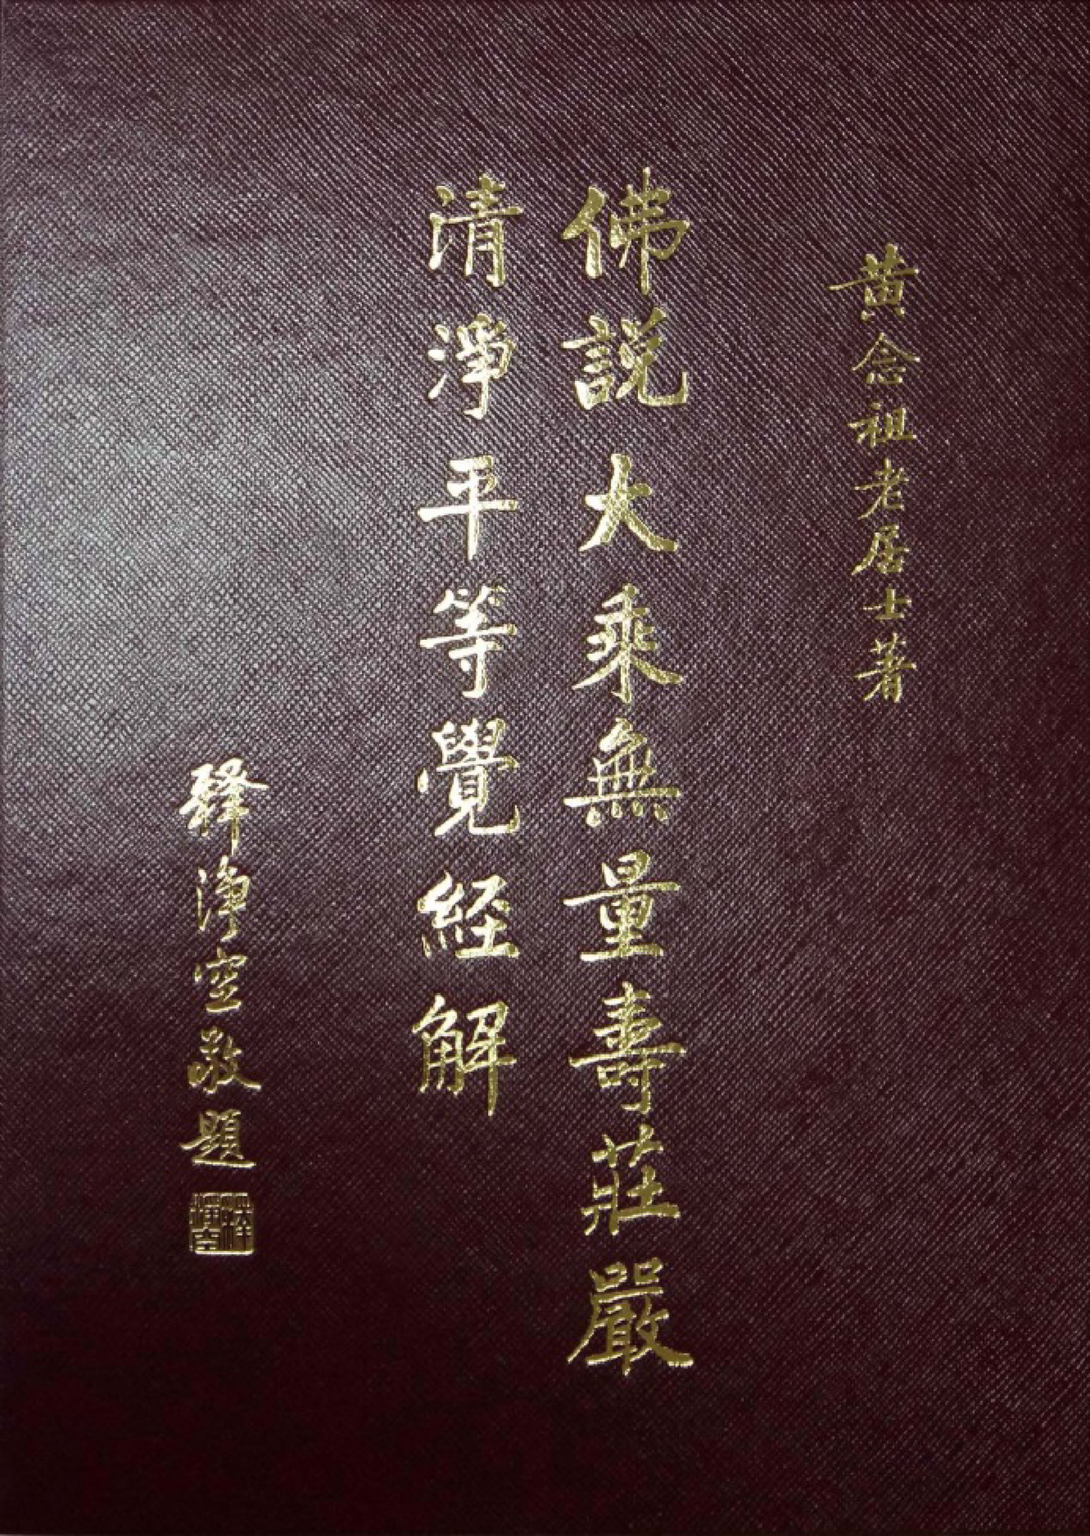 黄念祖老居士著
佛説大乘無量壽莊嚴
清淨平等覺經解
釋淨空敬題